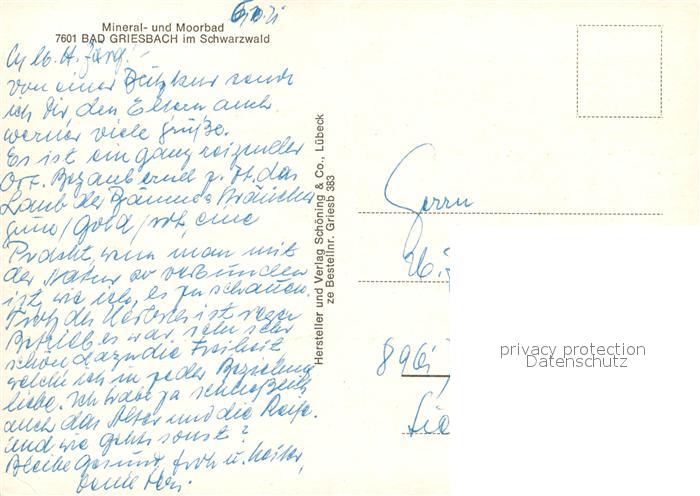 Mineral- und Moorbad
7601 BAD GRIESBACH im Schwarzwald
von einer kur sende
ich Dir, den Eltern auch
Werner viele Grüße.
Es ist ein ganz reizender
Ort. Bezaubernd z. Zt. das
Laub der Bäume u. Sträucher
grün/Gold/rot, eine
Pracht, wenn man mit
der Natur so verbunden
ist, wie ich, es zu schauen.
Trotz des Herbstes ist reger
Betrieb, es war sehr sehr
schön dazu die Freiheit
welche ich in jeder Beziehung
liebe. Ich habe ja schließlich
auch das Alter und die Reife.
Und wie gehts sonst?
Bleibe Gesund, froh u. heiter,
Deine
Hersteller und Verlag Schöning & Co., Lübeck
ze Bestellnr. Griesb 383
Herrn
896
privacy protection
Datenschutz